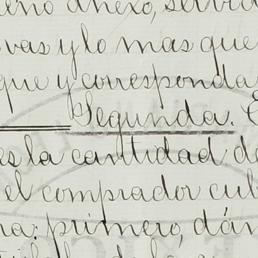 eno anexo, servid
vas y lo mas que
que y corresponda
Segunda.
es la cantidad de
el comprador cub
ra: primero, dán